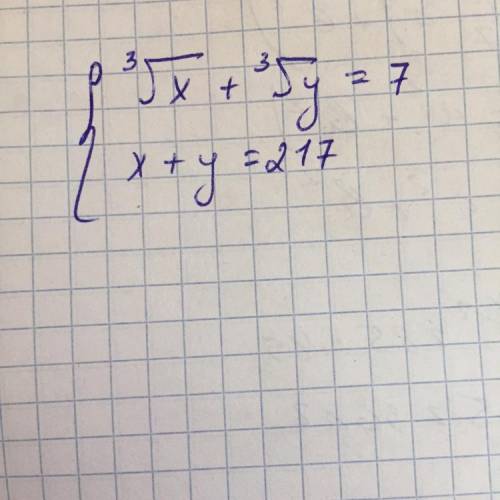 ∛x + ∛y = 7
x + y = 217